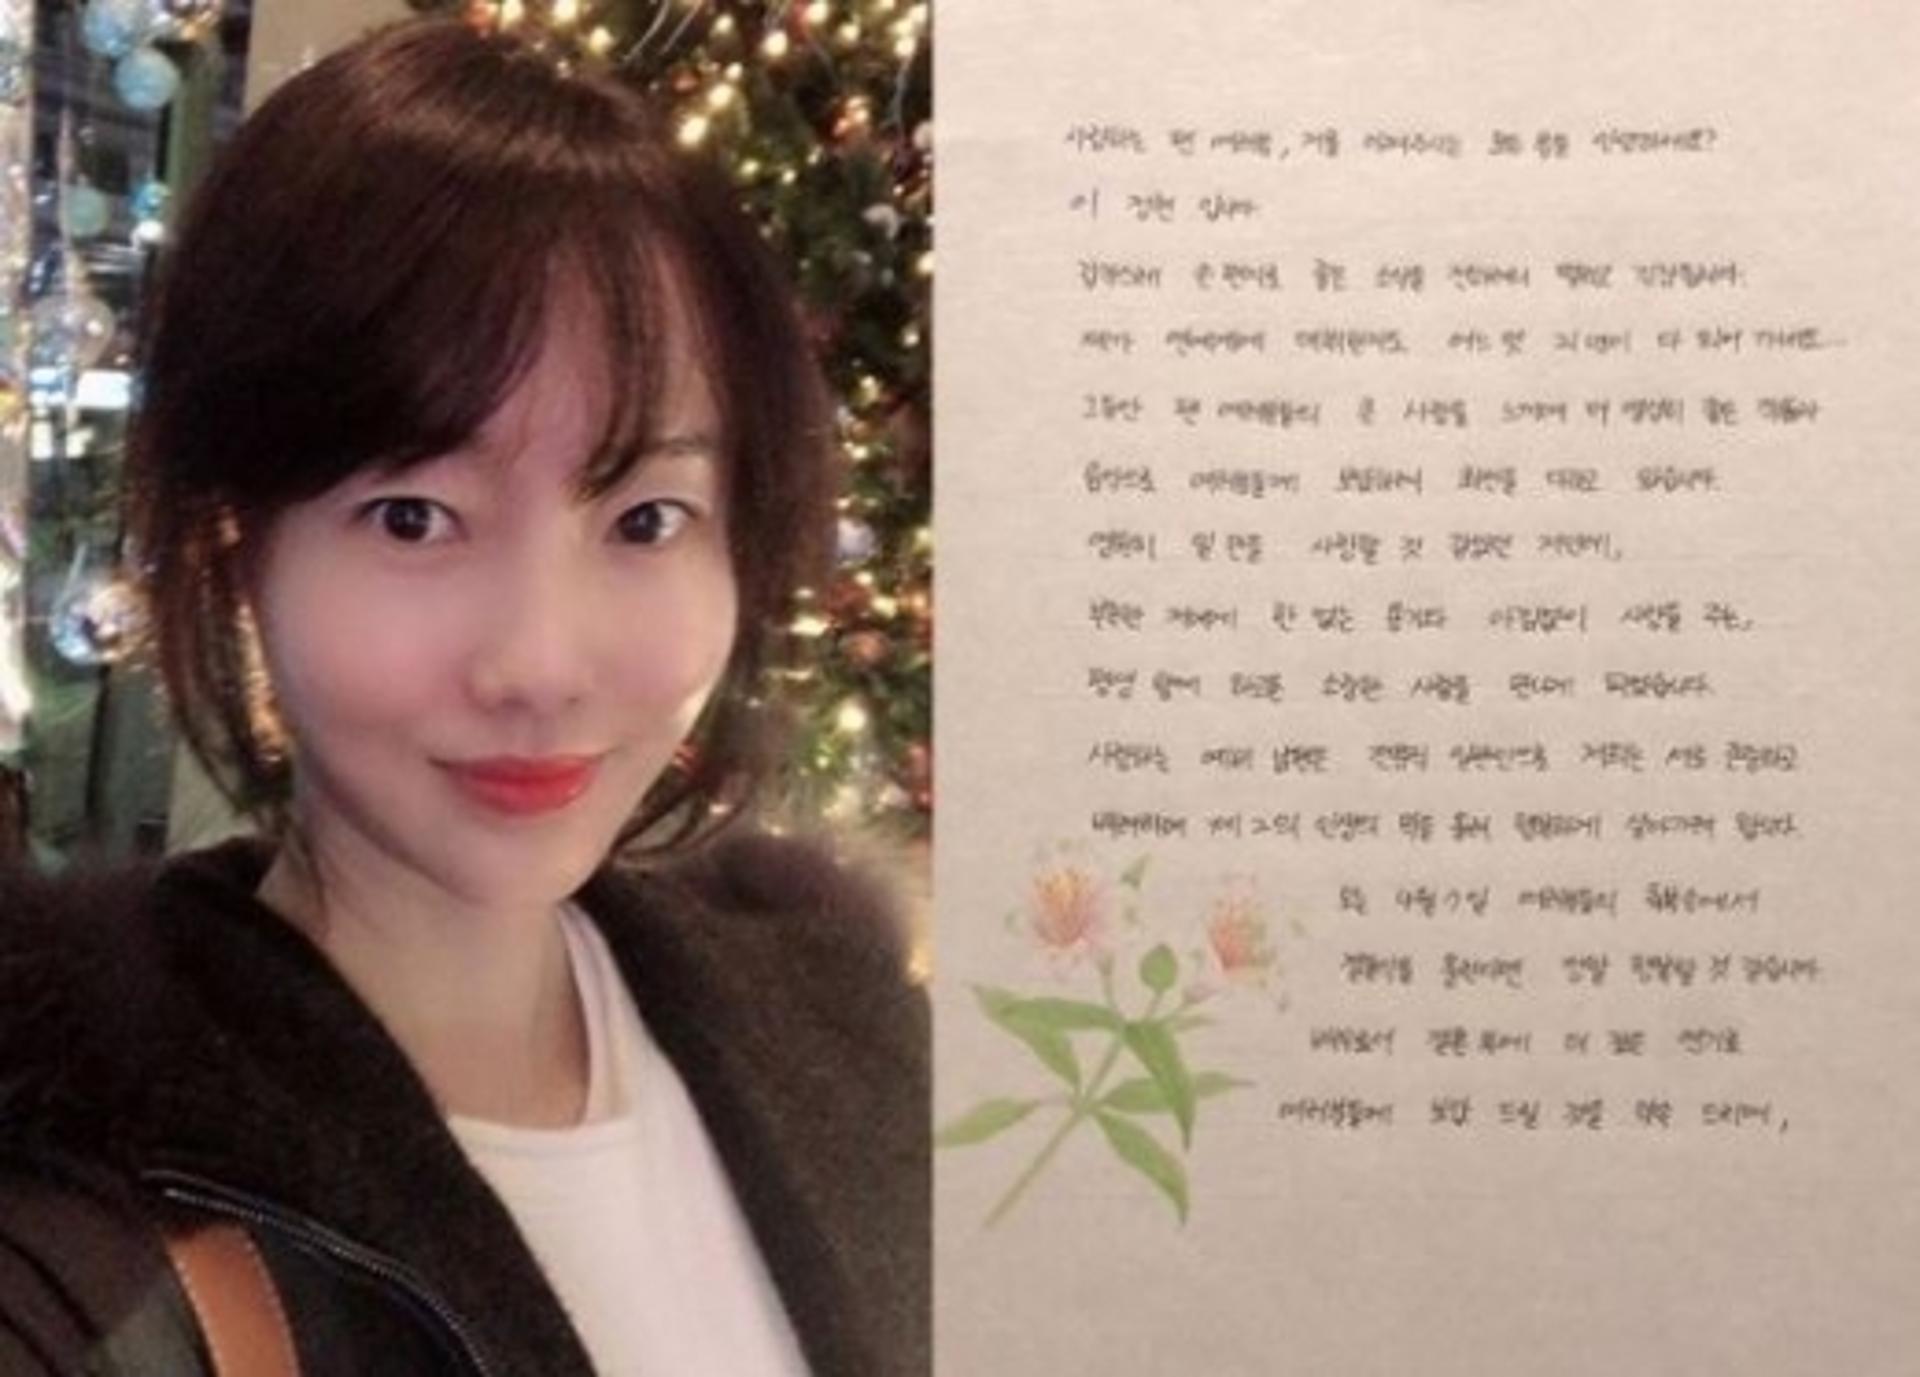 사랑하는 팬 여러분, 저를 아껴주시는 모든 분들 안녕하세요?
이 정현 입니다.
갑작스레 손편지로 좋은 소식을 전하려니 떨리고 긴장됩니다.
제가 연예계에 데뷔한지도 어느 덧 20년이 다 되어 가네요...
그동안 팬 여러분들의 큰 사랑을 느끼며 더 열심히 좋은 작품과
음악으로 여러분들께 보답하려 최선을 다하고 있습니다.
영원히 일 만을 사랑할 것 같았던 저에게,
부족한 저에게 한 없는 용기와 아낌없이 사랑을 주는,
평생 함께 하고픈 소중한 사람을 만나게 되었습니다.
사랑하는 예비 남편은 건실한 일반인으로 저희는 서로 존중하고
배려하며 제 2의 인생의 막을 함께 현명하게 살아가려 합니다.
오는 4월 7일 여러분들의 축복속에서
결혼식을 올린다면 정말 행복할 것 같습니다.
배우로서 결혼 후에 더 깊은 연기로
여러분들께 보답 드릴 것을 약속 드리며,